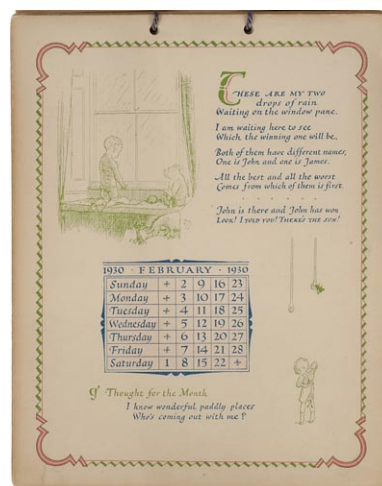 THESE ARE MY TWO
drops of rain
Waiting on the window pane.
I am waiting here to see
Which the winning one will be.
Both of them have different names,
One is John and one is James.
All the best and all the worst
Comes from which of them is first.
. . . . . .
John is there and John has won
LOOK! I TOLD YOU! THERE'S THE SUN!
1930 · FEBRUARY · 1930
Sunday + 2 9 16 23
Monday + 3 10 17 24
Tuesday + 4 11 18 25
Wednesday + 5 12 19 26
Thursday + 6 13 20 27
Friday + 7 14 21 28
Saturday 1 8 15 22 +
Thought for the Month
I know wonderful paddly places
Who's coming out with me?